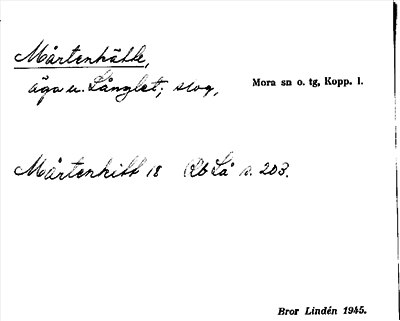 Mårtenhätte,
äga u. Långlet; skog, Mora sn o. tg, Kopp. l.
Mårtenhitt 18 Rb Lå s. 203.
Bror Lindén 1945.